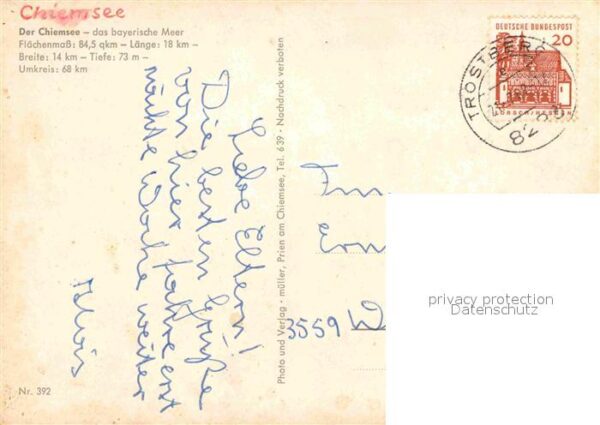 Chiemsee
Der Chiemsee – das bayerische Meer
Flächenmaß: 84,5 qkm – Länge: 18 km –
Breite: 14 km – Tiefe: 73 m –
Umkreis: 68 km
Liebe Eltern!
Die besten Grüße
von hier fahre erst
nächste Woche weiter
Photo und Verlag · müller, Prien am Chiemsee, Tel. 639 · Nachdruck verboten
DEUTSCHE BUNDESPOST
20
LORSCH/HESSEN
TROSTBERG
Fam
3559
privacy protection
Datenschutz
Nr. 392